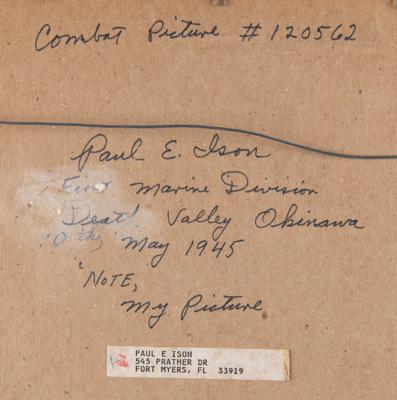 Combat Picture # 120562
Paul E. Ison
First Marine Division
Death Valley Okinawa
10th, May 1945
"NOTE,
My Picture
PAUL E ISON
545 PRATHER DR
FORT MYERS, FL 33919